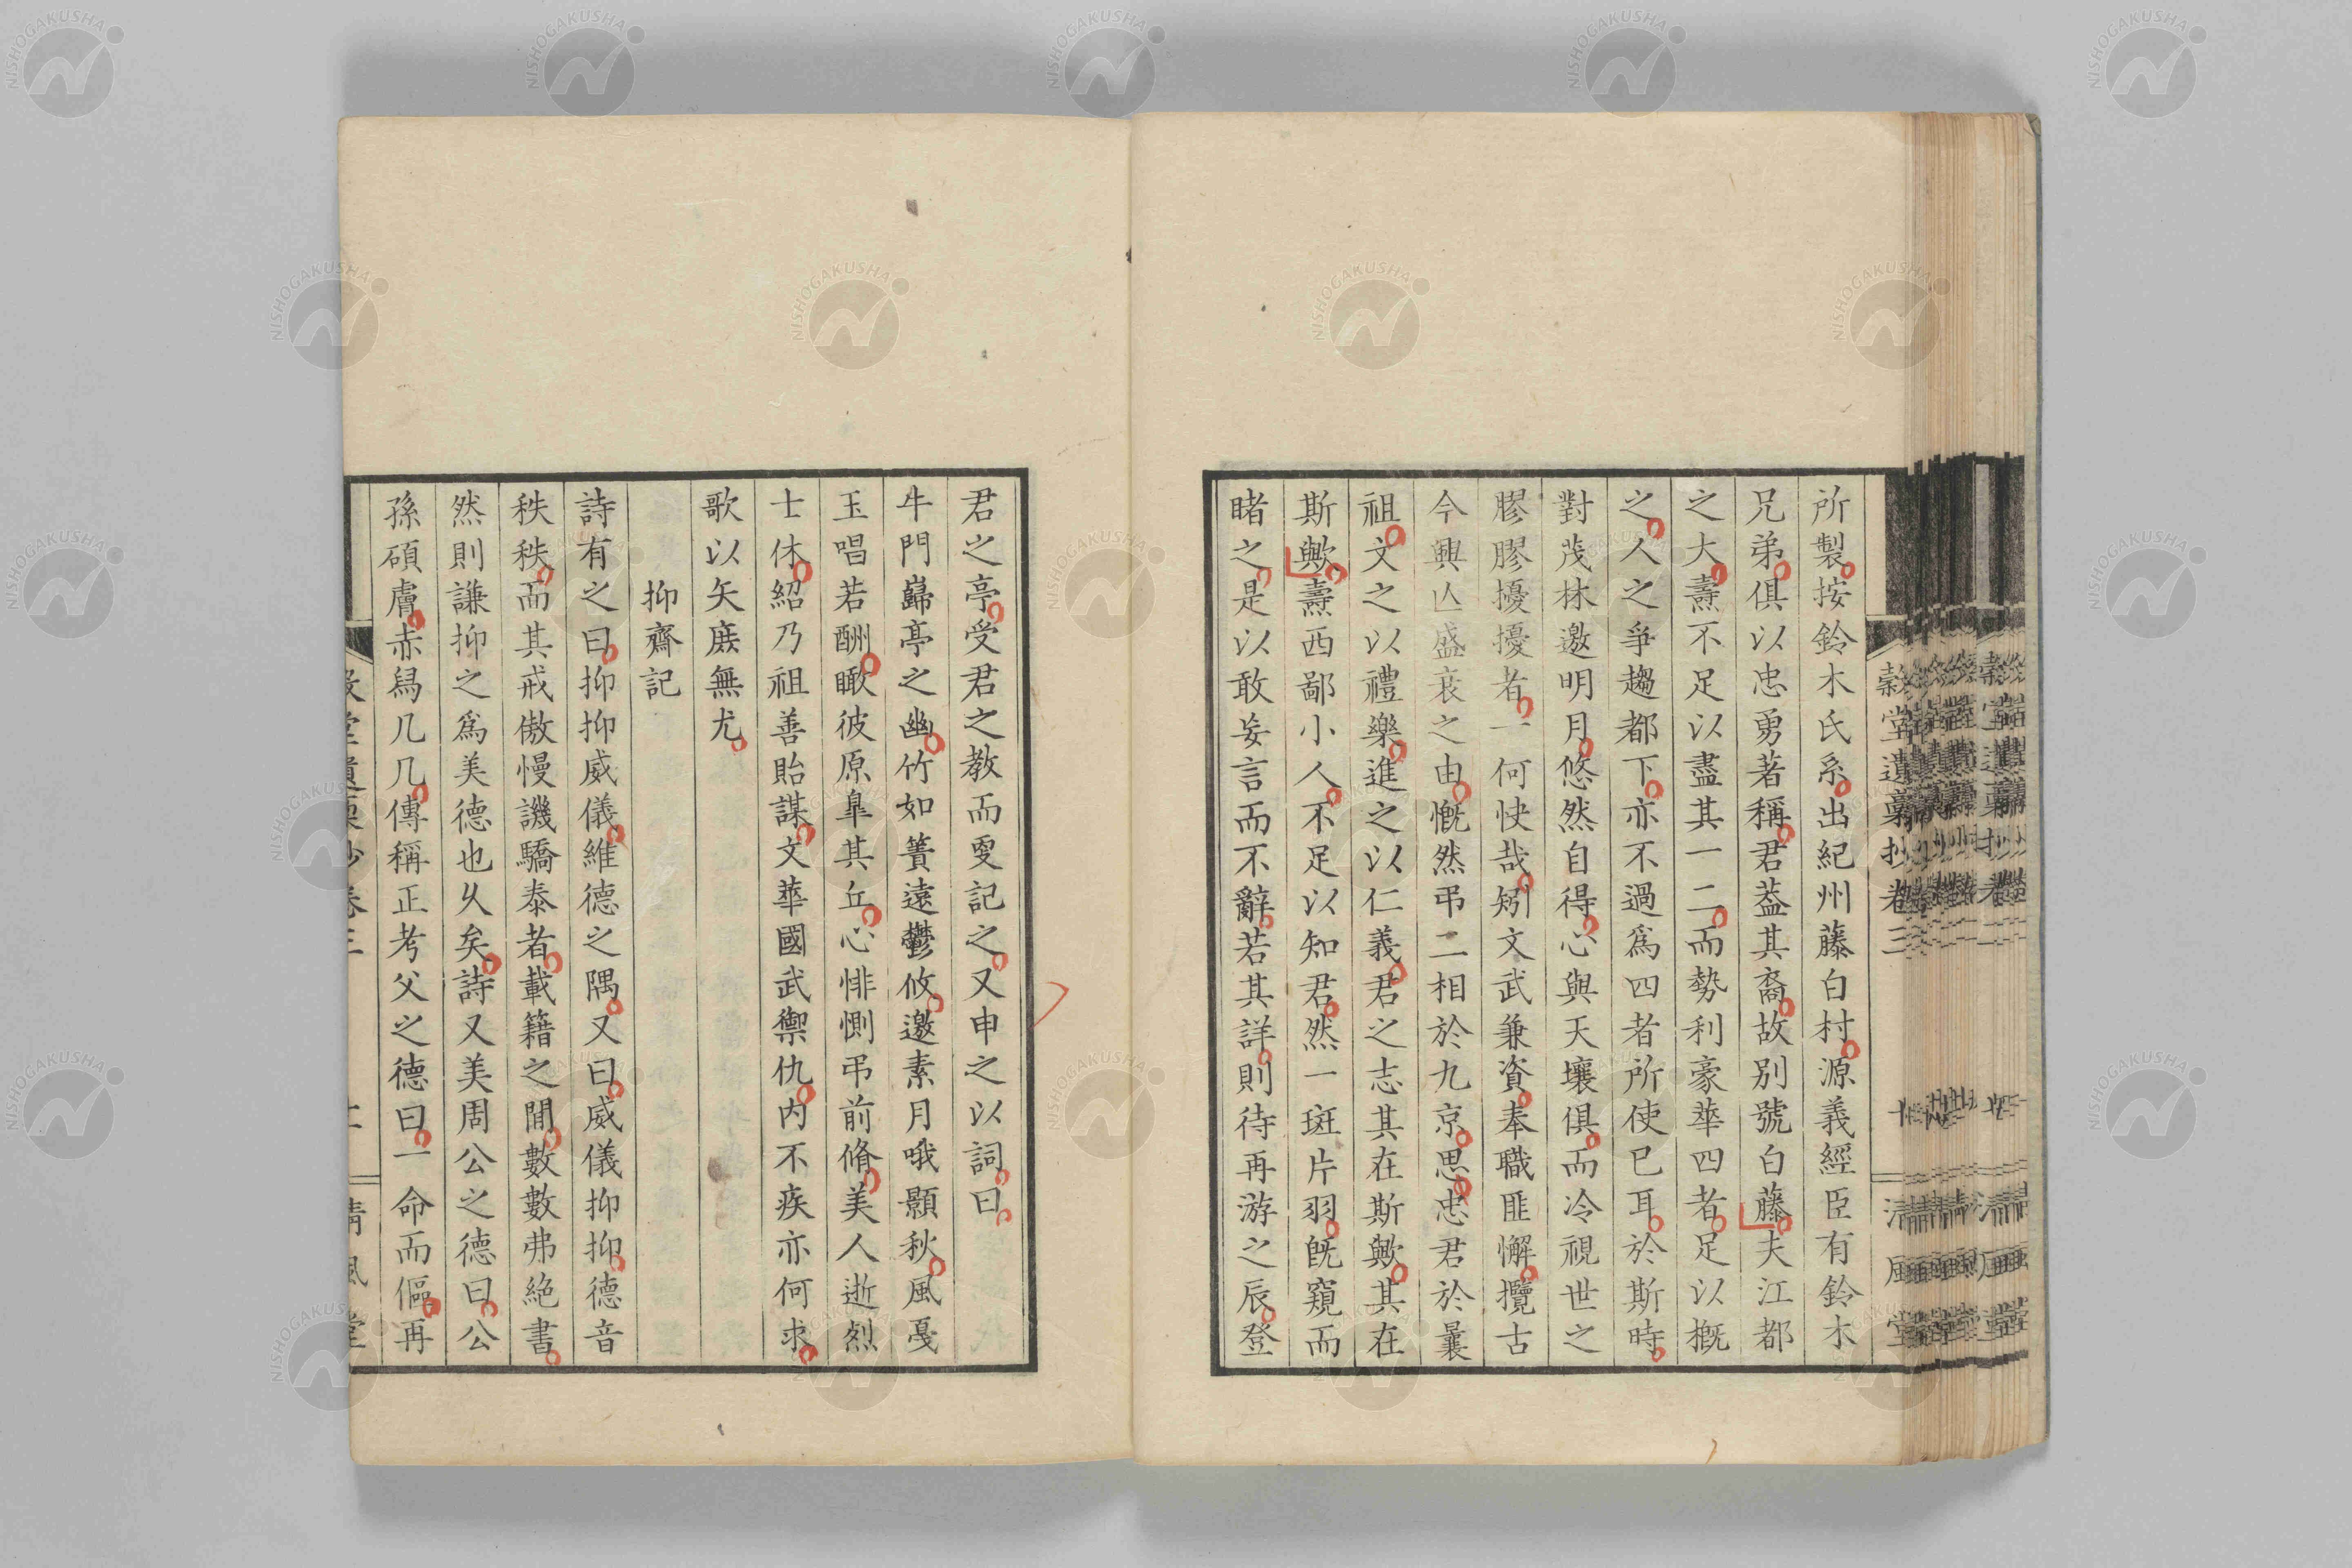 所製按鈴木氏系出紀州藤白村源義經臣有鈴木
兄弟俱以忠勇著稱君葢其裔故別號白藤夫江都
之大燾不足以盡其一二而勢利豪華四者足以概
之人之爭趨都下亦不過爲四者所使已耳於斯時
對茂林邀明月悠然自得心與天壤俱而冷視世之
膠膠擾擾者一何快哉矧文武兼資奉職匪懈攬古
今興亾盛衰之由慨然弔二相於九京思忠君於曩
祖文之以禮樂進之以仁義君之志其在斯歟其在
斯歟燾西鄙小人不足以知君然一斑片羽旣窺而
睹之是以敢妄言而不辭若其詳則待再游之辰登
君之亭受君之教而㪅記之又申之以詞曰
牛門巋亭之幽竹如簀遠鬱攸邀素月哦顥秋風戞
玉唱若酬瞰彼原臯其丘心悱惻弔前脩美人逝烈
士休紹乃祖善貽謀文華國武禦仇内不疾亦何求
歌以矢庶無尤
抑齋記
詩有之曰抑抑威儀維德之隅又曰威儀抑抑德音
秩秩而其戒傲慢譏驕泰者載籍之閒數數弗絶書
然則謙抑之爲美德也久矣詩又美周公之德曰公
孫碩膚赤舃几几傳稱正考父之德曰一命而傴再
穀堂遺稾抄卷三
清風堂